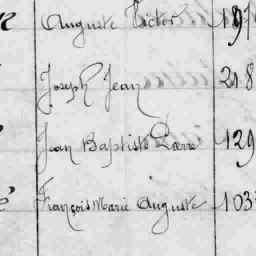 Auguste Victor 197
Joseph Jean 218
Jean Baptiste Pierre 129
François Marie Auguste 103